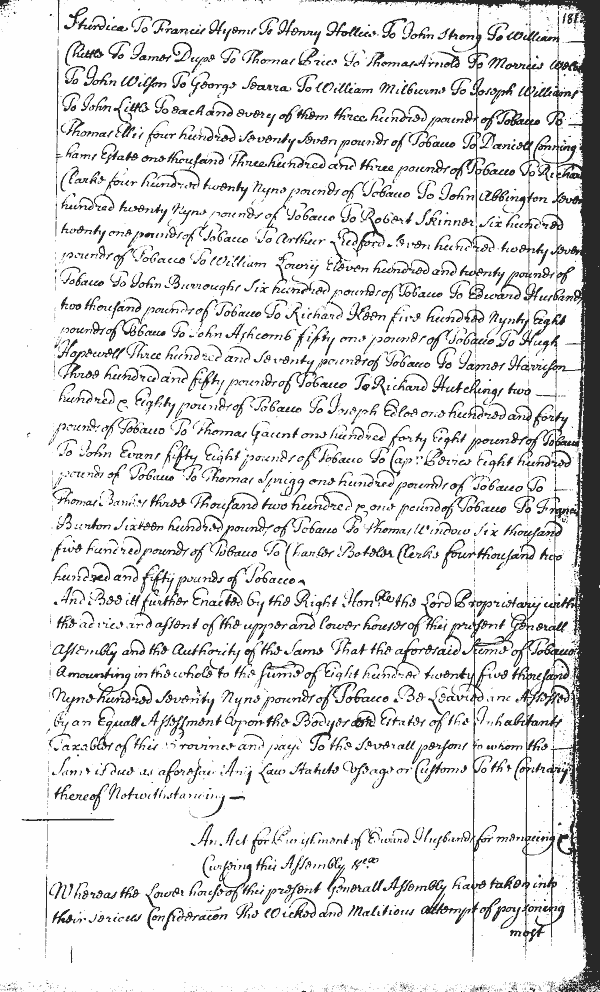 181
Sturdica To Francis Hyems To Henry Hollice To John Strong To William
To James Dupe To Thomas Price To Thomas Arnold To Morrice
To John Wilson To George Searra To William Milburne To Joseph Williams
To John Little To each and every of them three hundred pounds of Tobacco To
Thomas Ellis four hundred seventy seven pounds of Tobacco To Daniell Conning
=hams Estate one thousand Three hundred and three pounds of Tobacco To Richard
Clarke four hundred twenty Nyne pounds of Tobacco To John Abbington Seven
hundred twenty Nyne pounds of Tobacco To Robert Skinner Six hundred
twenty one pounds of Tobacco To Arthur Ludford Seven hundred twenty seven
pounds of Tobacco To William Lowry Eleven hundred and twenty pounds of
Tobacco To John Burroughs Six hundred pounds of Tobacco To Edward Husbands
two thousand pounds of Tobacco To Richard Keen five hundred Nynty Eight
pounds of Tobacco To John Ashcomb fifty one pounds of Tobacco To Hugh
Hopewell Three hundred and Seventy pounds of Tobacco To James Harrison
Three hundred and fifty pounds of Tobacco To Richard Hutchings two
hundred & Eighty pounds of Tobacco To Joseph Edloe one hundred and forty
pounds of Tobacco To Thomas Gaunt one hundred forty Eight pounds of Tobacco
To John Evans fifty Eight pounds of Tobacco To Capn. Eight hundred
pounds of Tobacco To Thomas Sprigg one hundred pounds of Tobacco To
Thomas Bankes three Thousand two hundred & one pound of Tobacco To Francis
Burton Sixteen hundred pounds of Tobacco To Thomas Window Six thousand
five hundred pounds of Tobacco To Charles Boteler Clerke four thousand two
hundred and fifty pounds of Tobacco.
And Bee itt further Enacted by the Right Honble the Lord Proprietary with
the advice and assent of the upper and lower houses of this present Generall
Assembly and the Authority of the Same That the aforesaid Sume of Tobacco
Amounting in the whole to the sume of Eight hundred twenty five thousand
Nyne hundred Seventy Nyne pounds of Tobacco Be Leavied and Assessed
by an Equall Assessment upon the Bodyes and Estates of the Inhabitants
Taxables of this Province and payd To the Severall persons to whom the
Same is due as aforesaid Any Law Statute Useage or Custome To the Contrary
thereof Notwithstanding —
An Act for Punishment of Edward Husbands for menacing &
Curssing this Assembly &ca
Whereas the Lower house of this present Generall Assembly have taken into
their Serious Consideracon The Wicked and Malitious attempt of poysoning
most